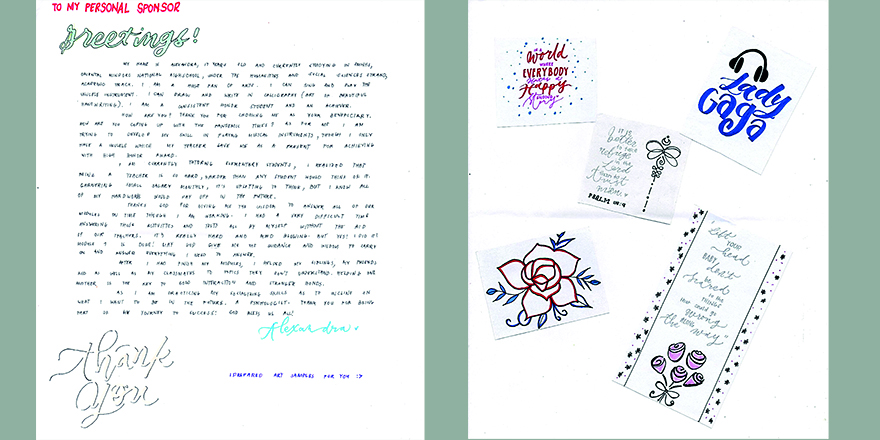 TO MY PERSONAL SPONSOR
Greetings!
MY NAME IS ALEXANDRA, YEARS OLD AND CURRENTLY STUDYING IN
ORIENTAL MINDORO NATIONAL HIGH SCHOOL, UNDER THE HUMANITIES AND SOCIAL SCIENCES STRAND,
ACADEMIC TRACK. I AM A HUGE FAN OF ARTS. I CAN SING AND PLAY THE
UKULELE INSTRUMENT. I CAN DRAW AND WRITE IN CALLIGRAPHY (ART OF BEAUTIFUL
HANDWRITING). I AM A CONSISTENT HONOR STUDENT AND AN ACHIEVER.
HOW ARE YOU? THANK YOU FOR CHOOSING ME AS YOUR BENEFICIARY.
HOW ARE YOU COPING UP WITH THE PANDEMIC TIMES? AS FOR ME, I AM
TRYING TO DEVELOP MY SKILL IN PLAYING MUSICAL INSTRUMENTS, THOUGH I ONLY
HAVE A UKULELE WHICH MY TEACHER GAVE ME AS A PRESENT FOR ACHIEVING
WITH HIGH HONOR AWARD.
I AM CURRENTLY TUTORING ELEMENTARY STUDENTS, I REALIZED THAT
BEING A TEACHER IS SO HARD, HARDER THAN ANY STUDENT WOULD THINK OF IT.
GARNERING SMALL SALARY MONTHLY, IT'S UPSETTING TO THINK, BUT I KNOW ALL
OF MY HARDWORK WOULD PAY OFF IN THE FUTURE.
THANKS GOD FOR GIVING ME THE WISDOM TO ANSWER ALL OF OUR
MODULES ON TIME THOUGH I AM WORKING. I HAD A VERY DIFFICULT TIME
ANSWERING THOSE ACTIVITIES AND TESTS ALL BY MYSELF WITHOUT THE AID
OF OUR TEACHERS. IT'S REALLY HARD AND MIND BLOWING. BUT YES! I DID IT
MODULE 1 IS OVER! MAY GOD GIVE ME THE GUIDANCE AND WISDOM TO CARRY
ON AND ANSWER EVERYTHING I NEED TO ANSWER.
AFTER I HAD FINISH MY MODULES, I HELPED MY SIBLINGS, MY FRIENDS
AND AS WELL AS MY CLASSMATES TO TOPICS THEY DON'T UNDERSTAND. HELPING ONE
ANOTHER IS THE KEY TO GOOD INTERACTION AND STRONGER BONDS.
AS I AM PRACTICING MY COUNSELING SKILLS AS TO INCLINE ON
WHAT I WANT TO BE IN THE FUTURE, A PSYCHOLOGIST. THANK YOU FOR BEING
PART OF MY JOURNEY TO SUCCESS! GOD BLESS US ALL!
Alexandra.
Thank
You
I PREPARED ART SAMPLES FOR YOU :)
in a
World
WHERE
EVERYBODY
Happy
Story
Lady
Gaga
it is
better
to take
refuge
in the
Lord
than to
trust
man.
PSALM 118:8
"lift
YOUR
head
BABY
don't
be
Scared
of the
THINGS
THAT COULD GO
wrong
ALONG
the way"